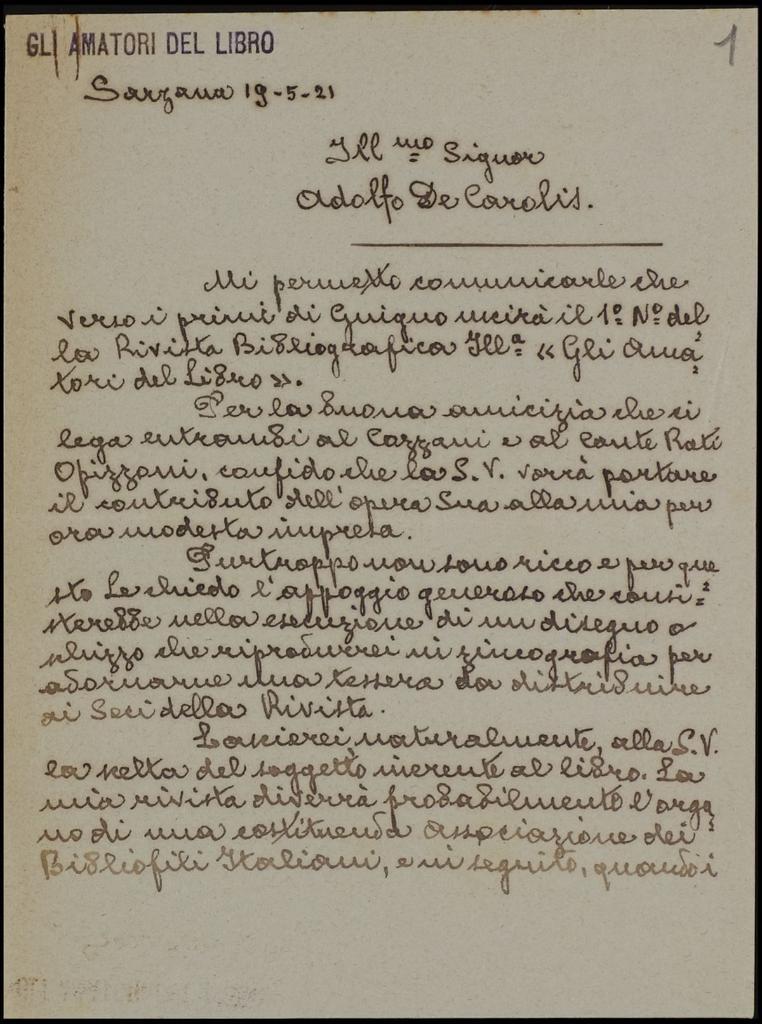 GLI AMATORI DEL LIBRO
1
Sarzana 19-5-21
Ill mo Signor
Adolfo De Carolis.
Mi permetto comunicarle che
verso i primi di Guigno uscirà il 1º Nº del
la Rivista Bibliografica Illª « Gli Ama=
tori del Libro ».
Per la buona amicizia che ci
lega entrambi al Cozzani e al Conte Rati
Opizzoni, confido che la S. V. vorrà portare
il contributo dell'opera Sua alla mia per
ora modesta impresa.
Purtroppo non sono ricco e per que
sto Le chiedo l'appoggio generoso che consi=
sterebbe nella esecuzione di un disegno o
schizzo che riprodurrei in zincografia per
adornarne una tessera da distribuire
ai Soci della Rivista.
Lascierei, naturalmente, alla S. V.
la scelta del soggetto inerente al libro. La
mia rivista diverrà probabilmente l'orga=
no di una costituenda Associazione dei
Bibliofili Italiani, e in seguito, quando i